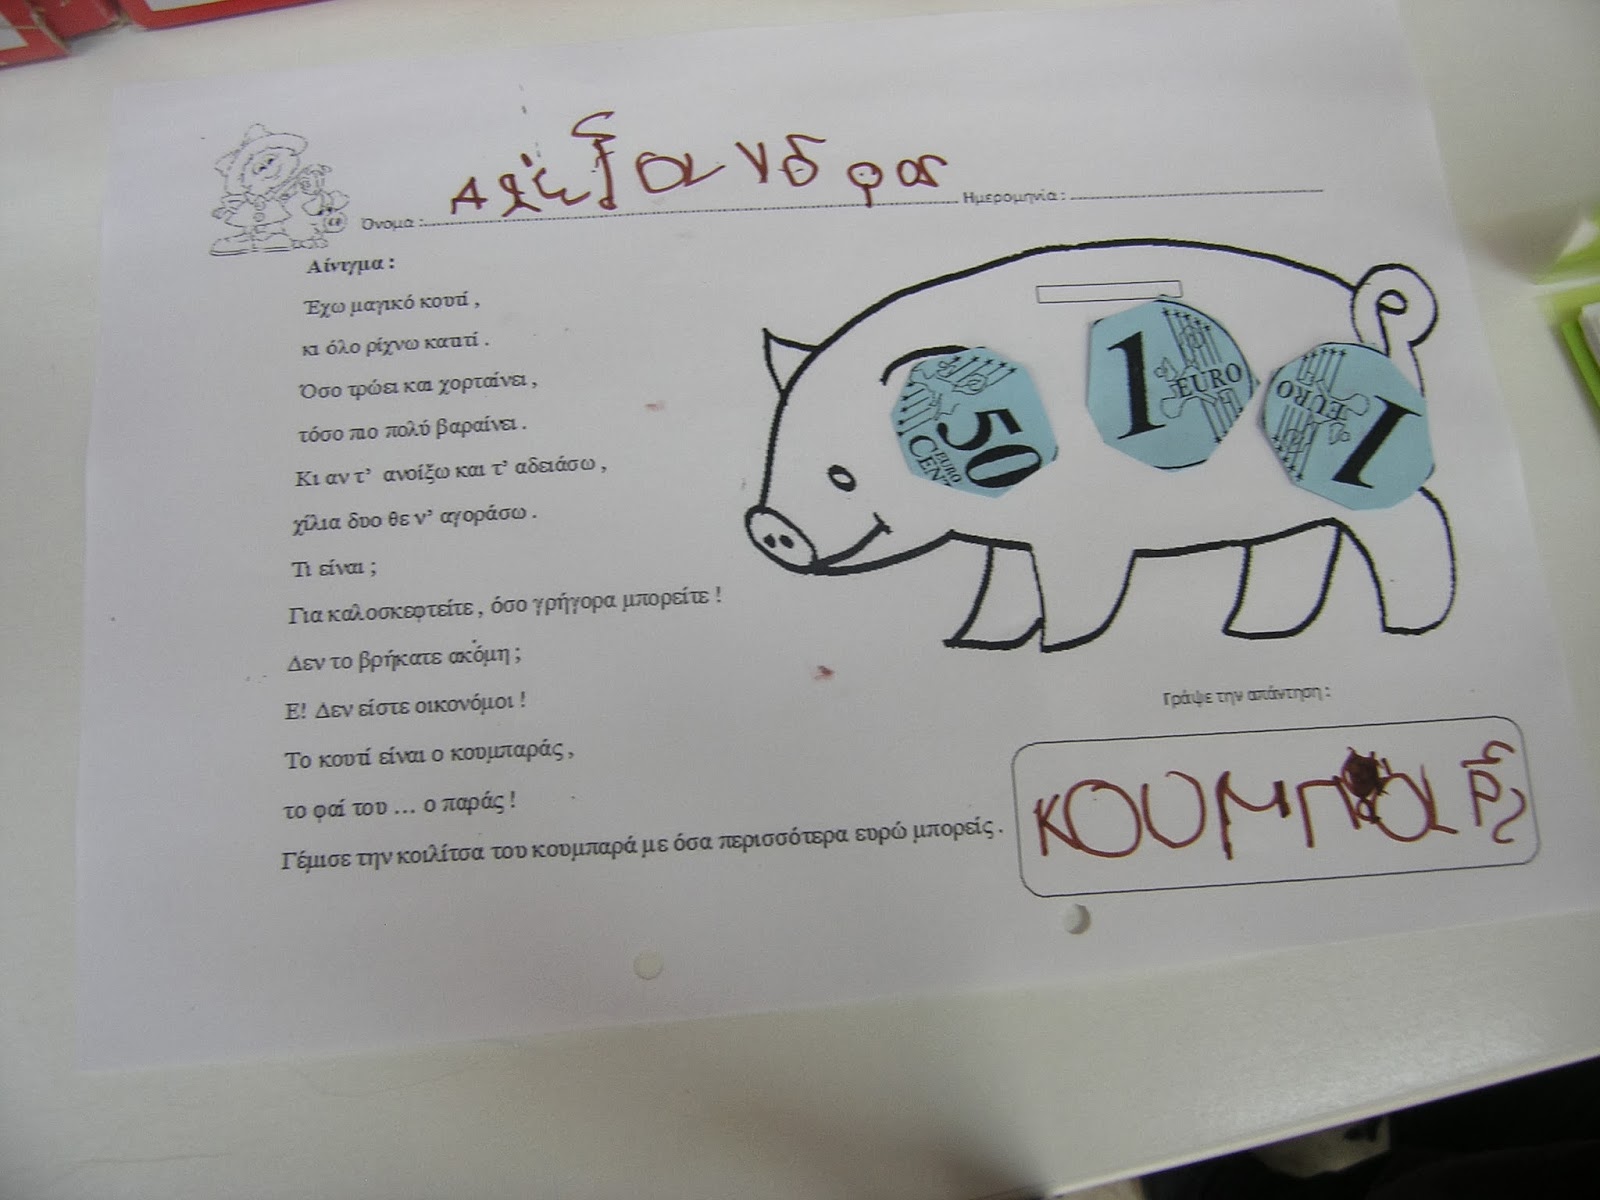 Όνομα : Αλέξανδρος Ημερομηνία :
Αίνιγμα :
Έχω μαγικό κουτί ,
κι όλο ρίχνω κατιτί .
Όσο τρώει και χορταίνει ,
τόσο πιο πολύ βαραίνει .
Κι αν τ’ ανοίξω και τ’ αδειάσω ,
χίλια δυο θε ν’ αγοράσω .
Τι είναι ;
Για καλοσκεφτείτε , όσο γρήγορα μπορείτε !
Δεν το βρήκατε ακόμη ;
Ε! Δεν είστε οικονόμοι !
Το κουτί είναι ο κουμπαράς ,
το φαί του ... ο παράς !
Γέμισε την κοιλίτσα του κουμπαρά με όσα περισσότερα ευρώ μπορείς .
50 EURO CENT
1 EURO
1 EURO
Γράψε την απάντηση :
ΚΟΥΜΠαΡς